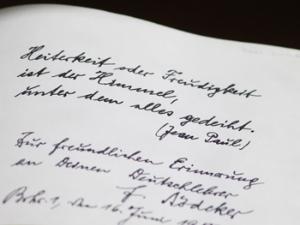 Heiterkeit oder Freudigkeit
ist der Himmel,
unter dem alles gedeiht.
(Jean Paul)
Zur freundlichen Erinnerung
an Deinen Deutschlehrer
den 16. Juni